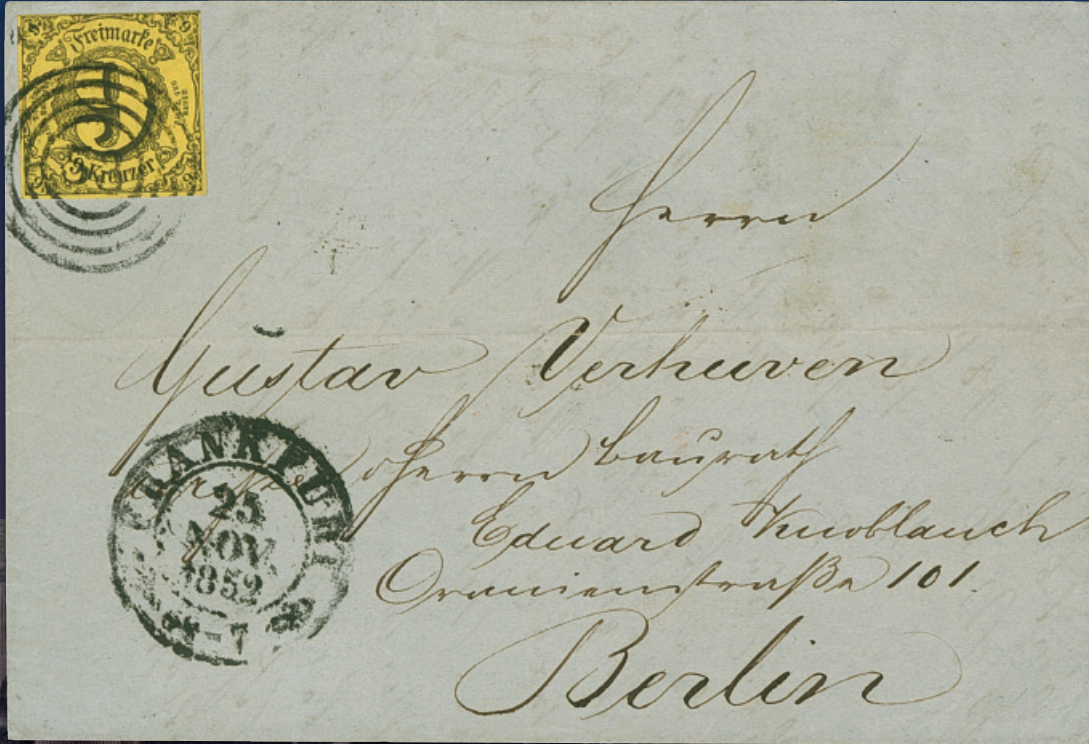 Freimarke
9
9 Kreuzer
Herrn
Gustav Verhuven
Herrn Baurath
Eduard Knoblauch
Oranienstraße 101.
Berlin
FRANKFURT
25
NOV.
1852